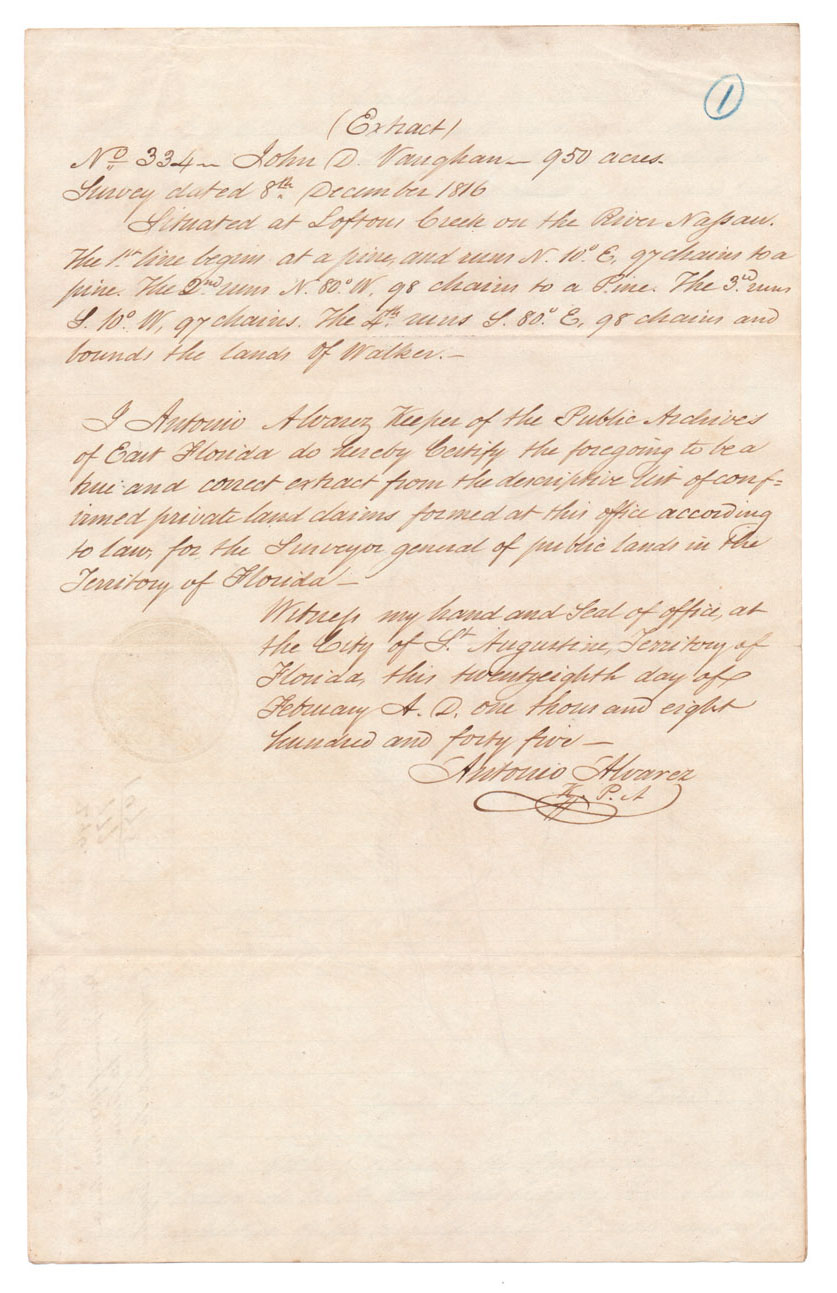 1
(Extract)
No. 334 — John D. Vaughan — 950 acres.
Survey dated 8th. December 1816
Situated at Loftons Creek on the River Nassau.
The 1st line begins at a pine, and runs N. 10° E, 97 chains to a
pine. The 2nd runs N. 80° W, 98 chains to a Pine. The 3rd runs
S. 10° W, 97 chains. The 4th. runs S. 80° E, 98 chains and
bounds the lands of Walker. —
I Antonio Alvarez Keeper of the Public Archives
of East Florida do hereby Certify the foregoing to be a
true and correct extract from the descriptive list of conf=
irmed private land claims formed at this office according
to law, for the Surveyor general of public lands in the
Territory of Florida —
Witness my hand and Seal of office, at
the City of St. Augustine, Territory of
Florida, this twentyeighth day of
February A. D. one thousand eight
hundred and forty five —
Antonio Alvarez
K. P. A